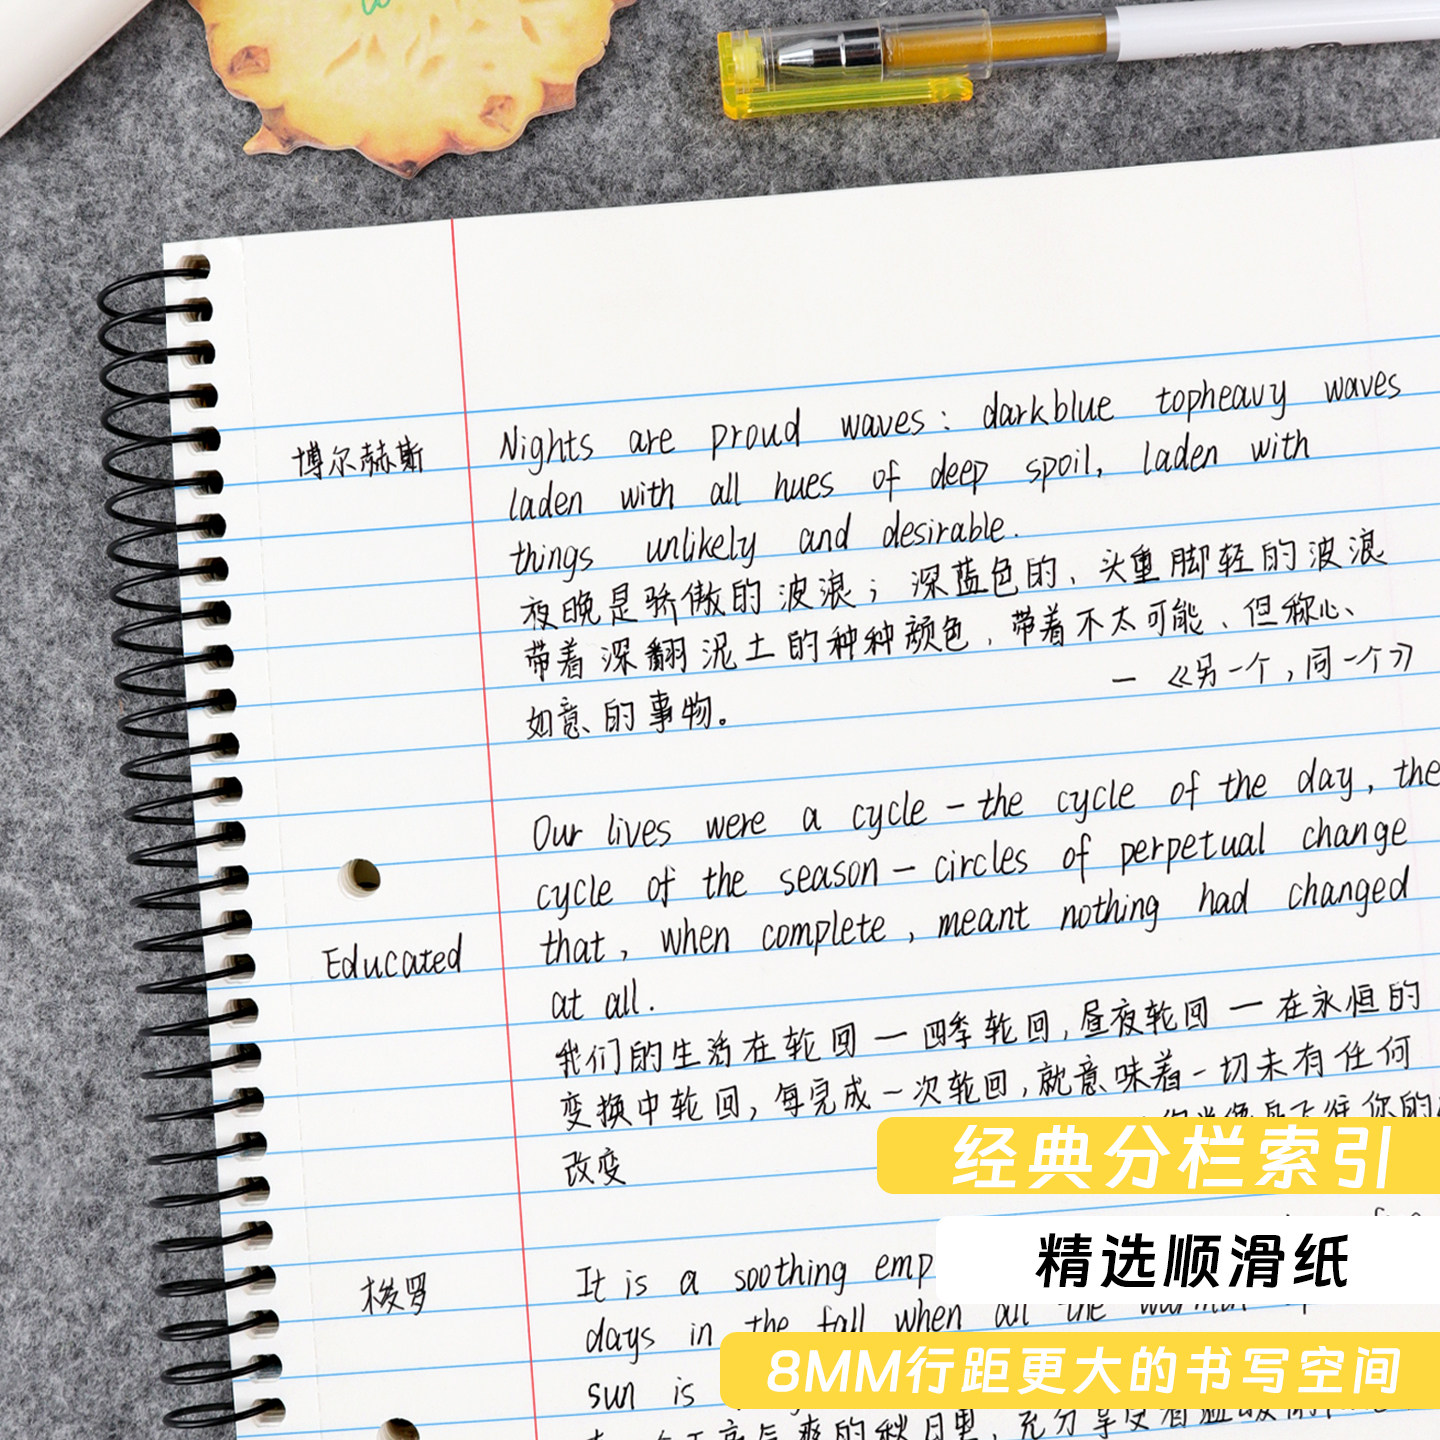 博尔赫斯
Nights are proud waves: darkblue topheavy waves
laden with all hues of deep spoil, laden with
things unlikely and desirable.
夜晚是骄傲的波浪；深蓝色的、头重脚轻的波浪
带着深翻泥土的种种颜色，带着不太可能、但称心、
如意的事物。
— 《另一个，同一个》
Our lives were a cycle — the cycle of the day, the
cycle of the season — circles of perpetual change
Educated
that, when complete, meant nothing had changed
at all.
我们的生活在轮回 — 四季轮回，昼夜轮回 — 在永恒的
变换中轮回，每完成一次轮回，就意味着一切未有任何
改变
经典分栏索引
梭罗
It is a soothing
精选顺滑纸
days in the fall when all the
sun is
8MM行距更大的书写空间